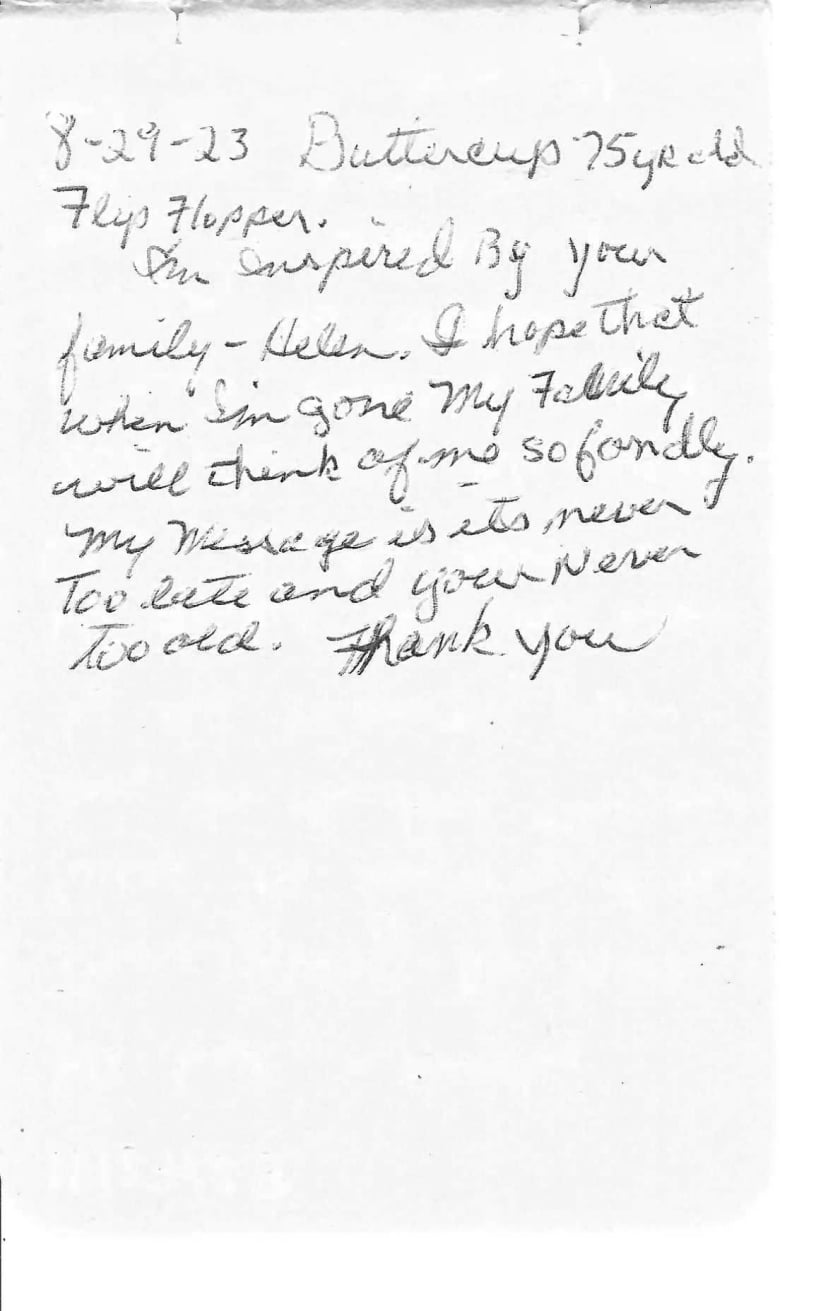 8-29-23 Buttercup 75yr old
Flip Flopper.
I'm Inspired By your
family - Helen. I hope that
when I'm gone My Family
will think of me so fondly.
My Message is its never
Too late and your Never
Too old. Thank you